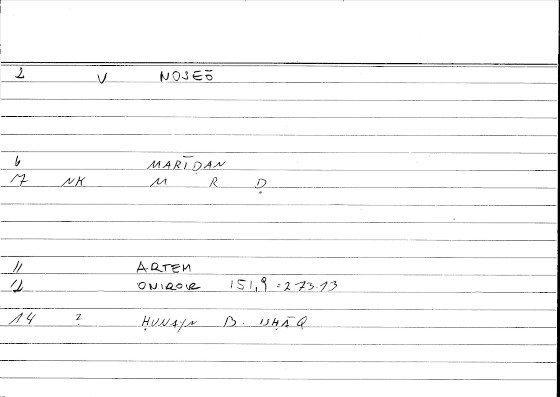 2 V NOSEŌ
6 MARĪḌAN
7 NK M R Ḍ
11 ARTEM
12 ONIROCR 151,9 = 273.13
14 ? ḤUNAYN B. ISḤĀQ